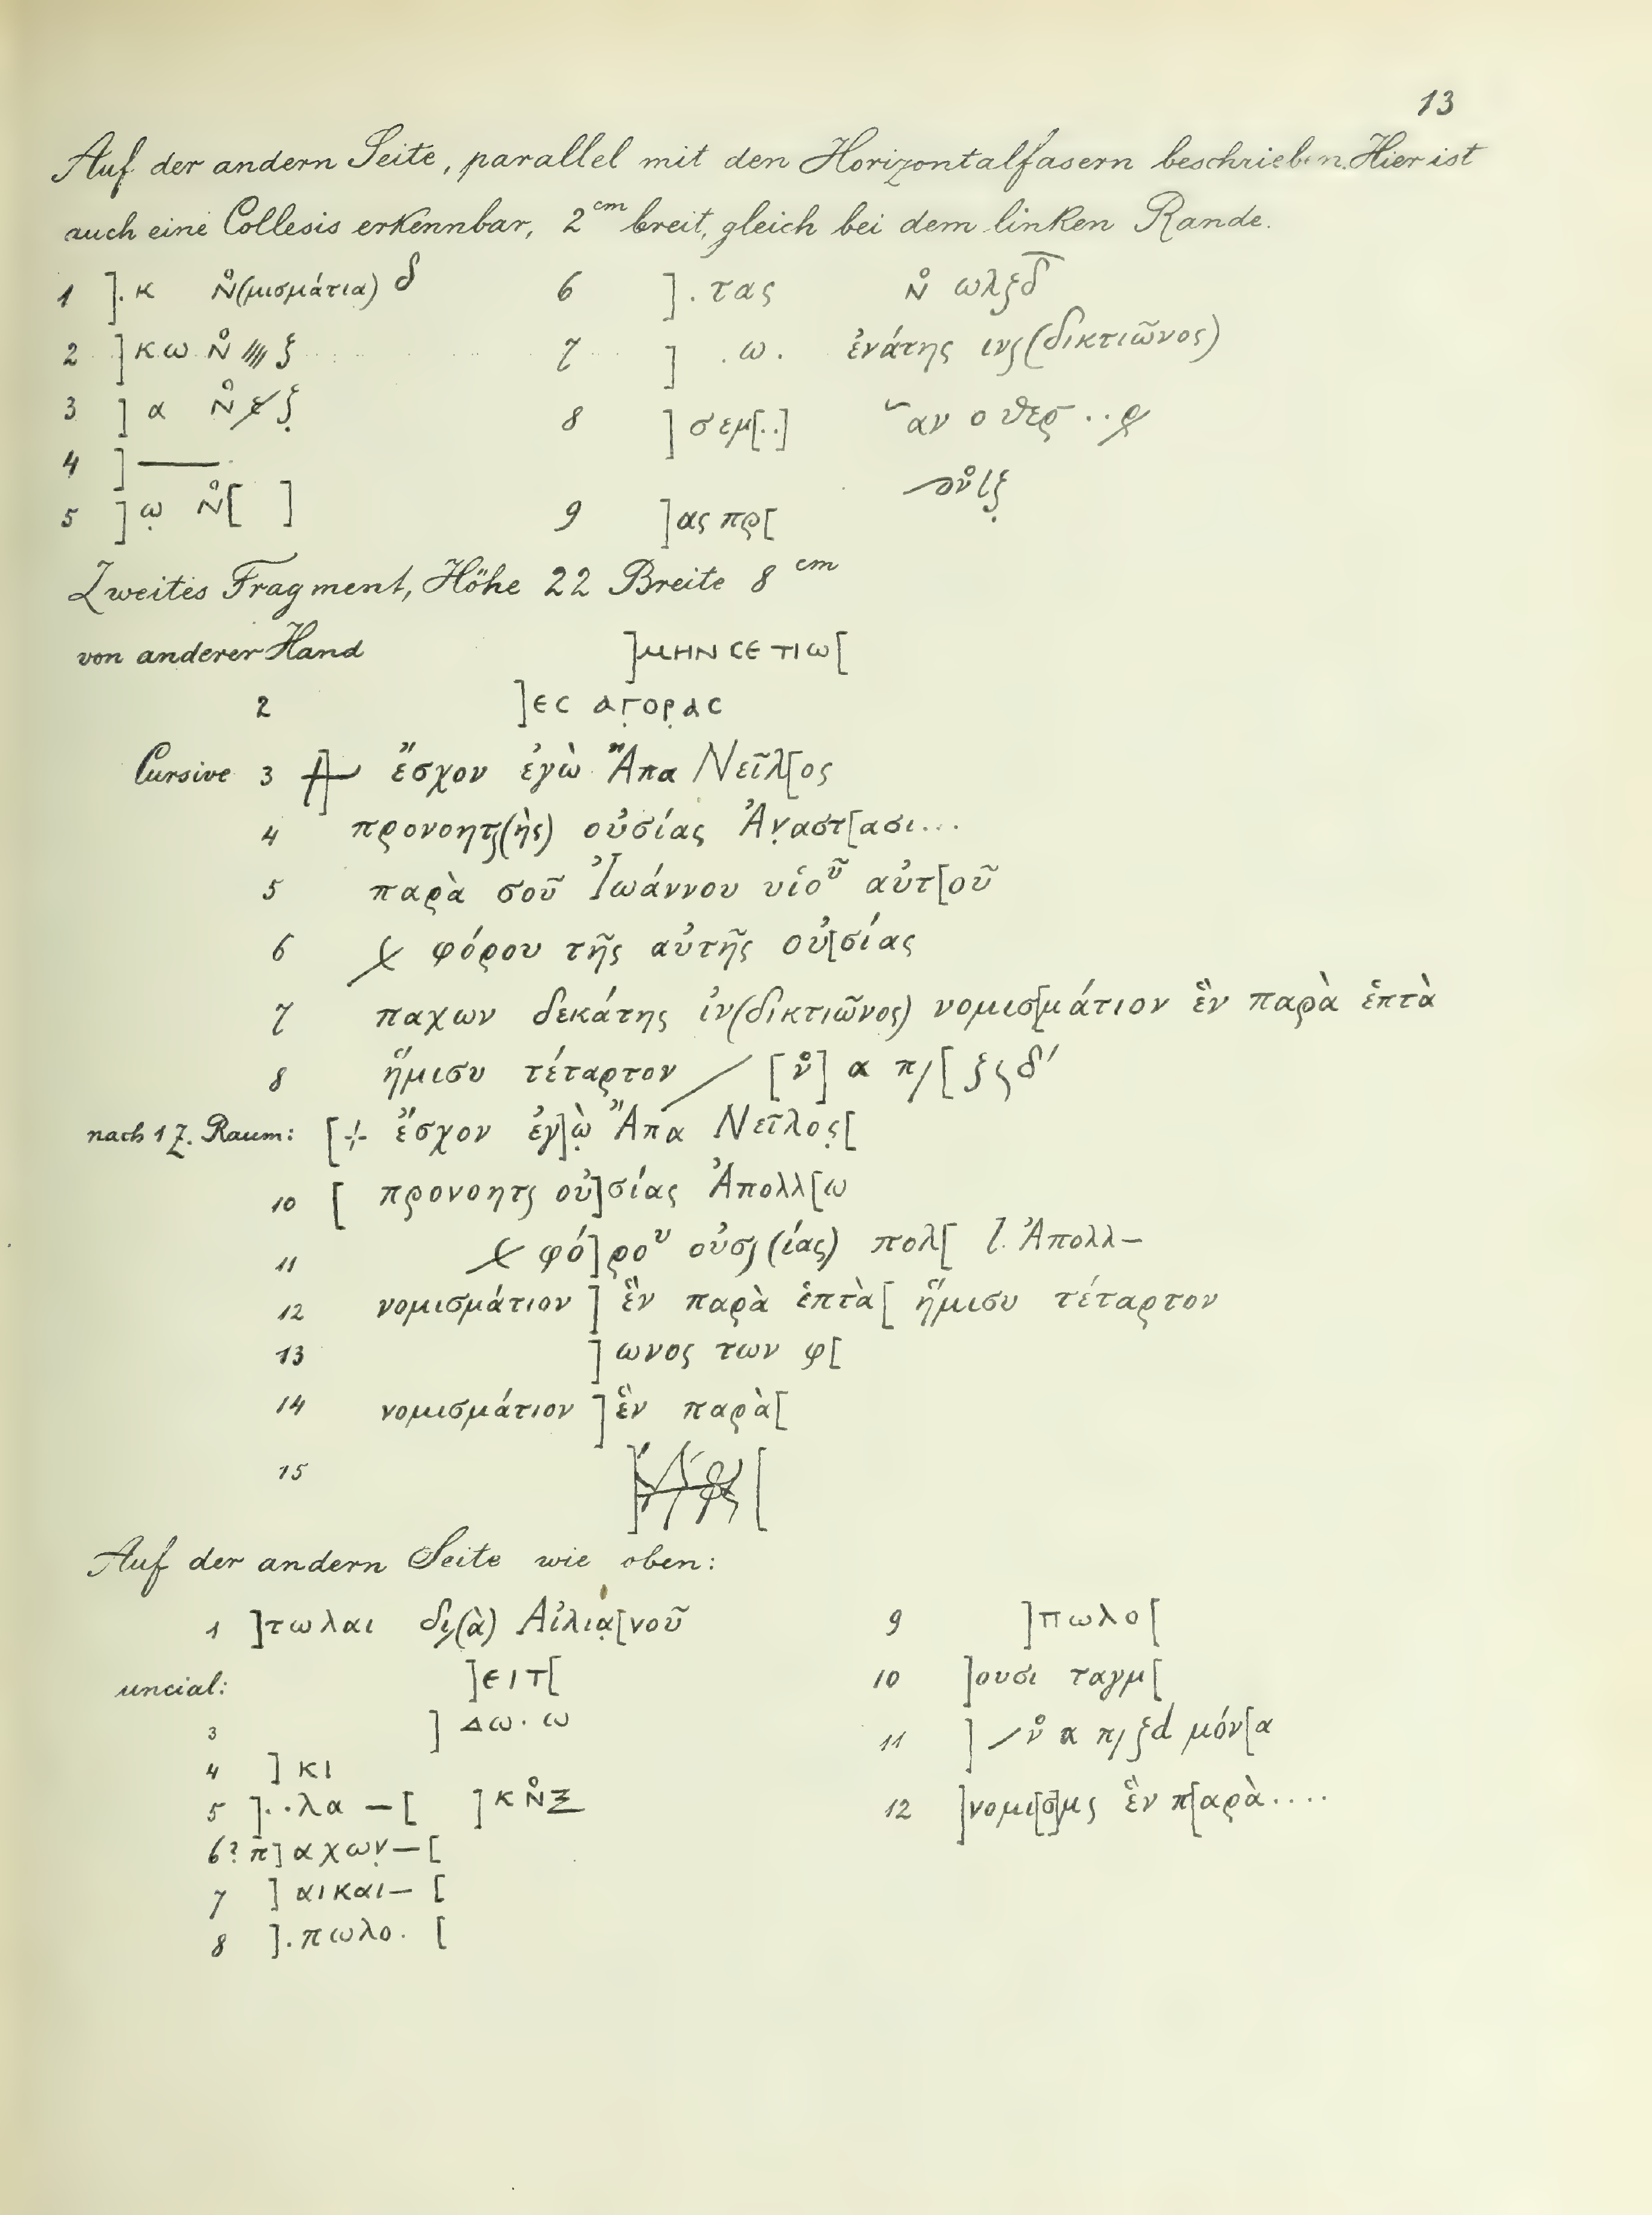 13
Auf der andern Seite, parallel mit den Horizontalfasern beschrieben. Hier ist
auch eine Collesis erkennbar, 2 cm breit, gleich bei dem linken Rande.
1 ]. κ Ν̊(μισμάτια) δ
2 ] κω Ν̊ //// ξ
3 ] α Ν̊
4 ] —
5 ] ω̣ Ν̊[ ]
6 ] . τας Ν̊ ωλξδ̅
7 ] . ω . ἐνάτης ινς(δικτιῶνος)
8 ] σεμ[..] αν ο θες ..
9 ] ας πρ[
Zweites Fragment, Höhe 22 Breite 8 cm
von anderer Hand ]ΜΗΝ CΕ ΤΙω[
2 ]ЄC ΑΓ̣ΟΡ̣ΑC
Cursive 3 ἔσχον ἐγὼ Ἄπα Νεῖλ[ος
4 προνοητς(ὴς) οὐσίας Ἀν̣αστ[ασι...
5 παρὰ σοῦ Ἰωάννου υἱοῦ αὐτ[οῦ
6 φόρου τῆς αὐτῆς οὐ[σίας
7 παχων δεκάτης ἰν(δικτιῶνος) νομισ[μάτιον ἓν παρὰ ἑπτὰ
8 ἥμισυ τέταρτον / [ν̊] α π/[ ξ ς δ′
nach 1 Z. Raum: [+ ἔσχον ἐγ]ὼ̣ Ἄπα Νεῖλος̣[
10 [ προνοητς οὐ]σίας Ἀπολλ[ω
11 φό]ρου οὐσς(ίας) πολ[ l. Ἀπολλ–
12 νομισμάτιον ] ἓν παρὰ ἑπτὰ[ ἥμισυ τέταρτον
13 ] ωνος των φ[
14 νομισμάτιον ] ἓν παρὰ[
15 ] [
Auf der andern Seite wie oben:
1 ]τωλαι δι(ὰ) Αἰλια̣[νοῦ
uncial: ]ЄΙΤ[
3 ] Δω . ω
4 ] κι
5 ]. . λα – [ ] κ Ν̊ Ξ
6? π] αχων̣ – [
7 ] αικαι – [
8 ]. πωλο . [
9 ]πωλο[
10 ]ουσι ταγμ[
11 ] / ν̊ α π/ ξd μόν[α
12 ]νομι[σ]μς ἓν π[αρὰ....